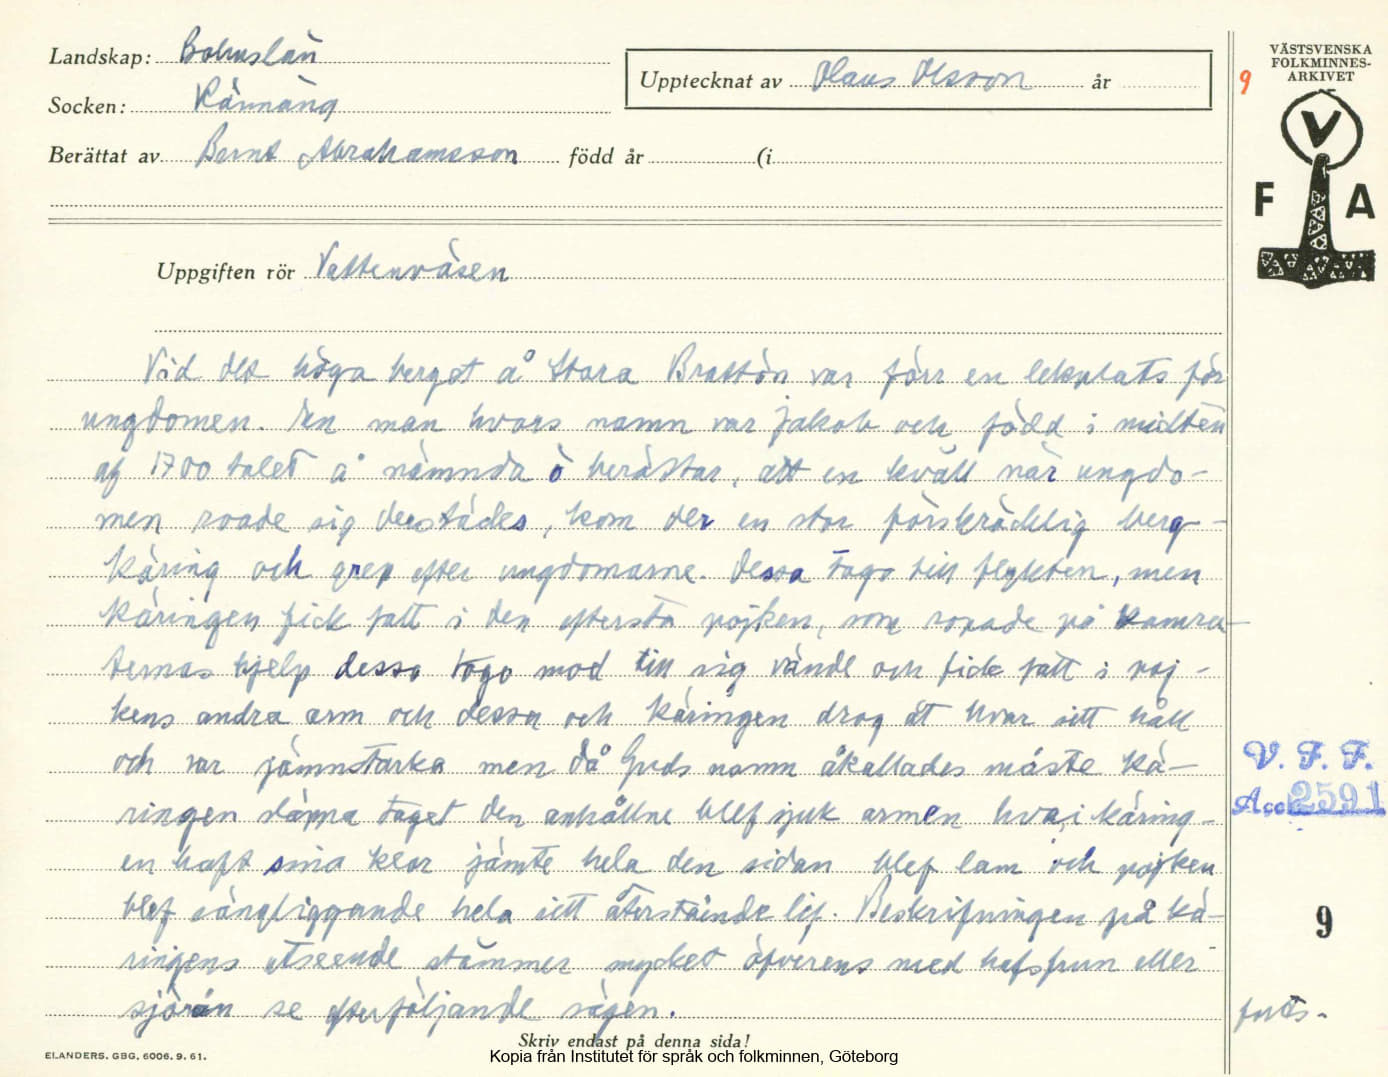 Landskap: Bohuslän
Socken: Rännäng
Berättat av Bernt Abrahamsson född år (i
Upptecknat av Olaus Olsson år
9
VÄSTSVENSKA
FOLKMINNES-
ARKIVET
V
F A
Uppgiften rör Vattenväsen
Vid det höga berget å Stora Brattön var förr en lekplats för
ungdomen. En man hvars namn var Jakob och född i midten
af 1700 talet å nämnda ö berättar, att en kväll när ungdo-
men roade sig derstädes, kom der en stor förskräcklig berg-
käring och grep efter ungdomarne. Dessa togo till flykten, men
käringen fick fatt i den eftersta pojken, som ropade på kamra-
ternas hjelp dessa togo mod till sig vände och fick fatt i poj-
kens andra arm och dessa och käringen drog åt hvar sitt håll
och var jämnstarka men då Guds namn åkallades måste kä-
ringen släppa taget den anhållne blef sjuk armen hvari käring-
en haft sina klor jämte hela den sidan blef lam och pojken
blef sängliggande hela sitt återstående lif. Beskrifningen på kä-
ringens utseende stämmer mycket öfverens med hafsfrun eller
sjörån se efterföljande sägen.
V. F. F.
Acc. 2591
9
forts.
Skriv endast på denna sida!
ELANDERS, GBG, 6006. 9. 61.
Kopia från Institutet för språk och folkminnen, Göteborg